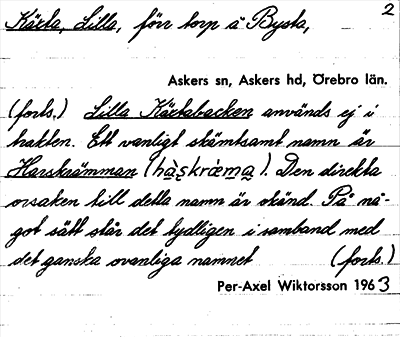 2
Kärta, Lilla, förr torp å Bysta,
Askers sn, Askers hd, Örebro län.
(forts.) Lilla Kärtabacken används ej i
trakten. Ett vanligt skämtsamt namn är
Harskrämman (hàs̨krǽma̲). Den direkta
orsaken till detta namn är okänd. På nå-
got sätt står det tydligen i samband med
det ganska ovanliga namnet (forts.)
Per-Axel Wiktorsson 1963